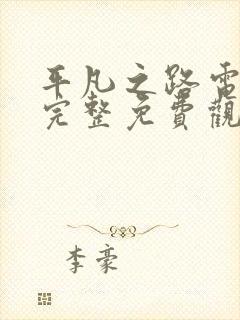 平凡之路電
完整免費觀
李豪